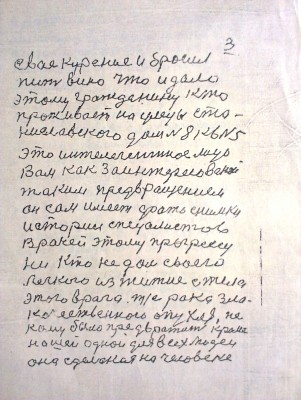 3
свае курение и бросил
пить вино что и дало
этому гражданину кто
проживает на улецы ста-
ниславского дом N8 КВ N5
это интелегентное лицо
Вам как Заинтересованой
таким предвращением
он сам имеет драть снимки
истории специалистов
врачей этому прыгрессу
ни кто не дал своего
легкого из тела
этого врага. тже рака зла-
ка ественного опухля, не
кому было предвратить крома
нашей одной для всех людей
она сделаная на человеке